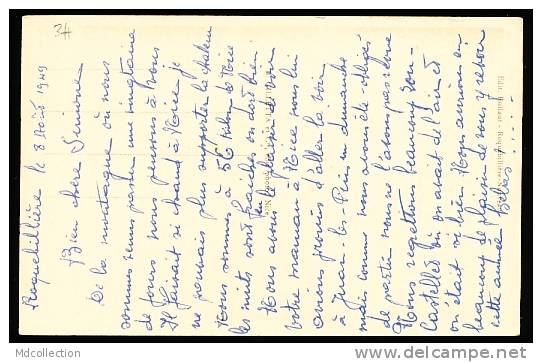 34
Roquebillière le 8 Août 1949
Bien chère Simone
De la montagne où nous
sommes venus passer une vingtaine
de jours nous pensons à vous
Il faisait si chaud à Nice je
ne pouvais plus supporter la chaleur
Nous sommes à 56 kilm de Nice
les nuits sont fraîches on dort bien
Nous avons eu le plaisir de voir
votre maman à Nice nous lui
avions promis d'aller la voir
à Juan-les-Pins un dimanche
mais comme nous avons été obligés
de partir nous ne l'avons pas revue
Nous regrettons beaucoup
Castellet où on avait de l'air et
on était si bien. Nous aurions eu
beaucoup de plaisir de vous y revoir
cette année
Mdcollection
http://www.delcampe.net